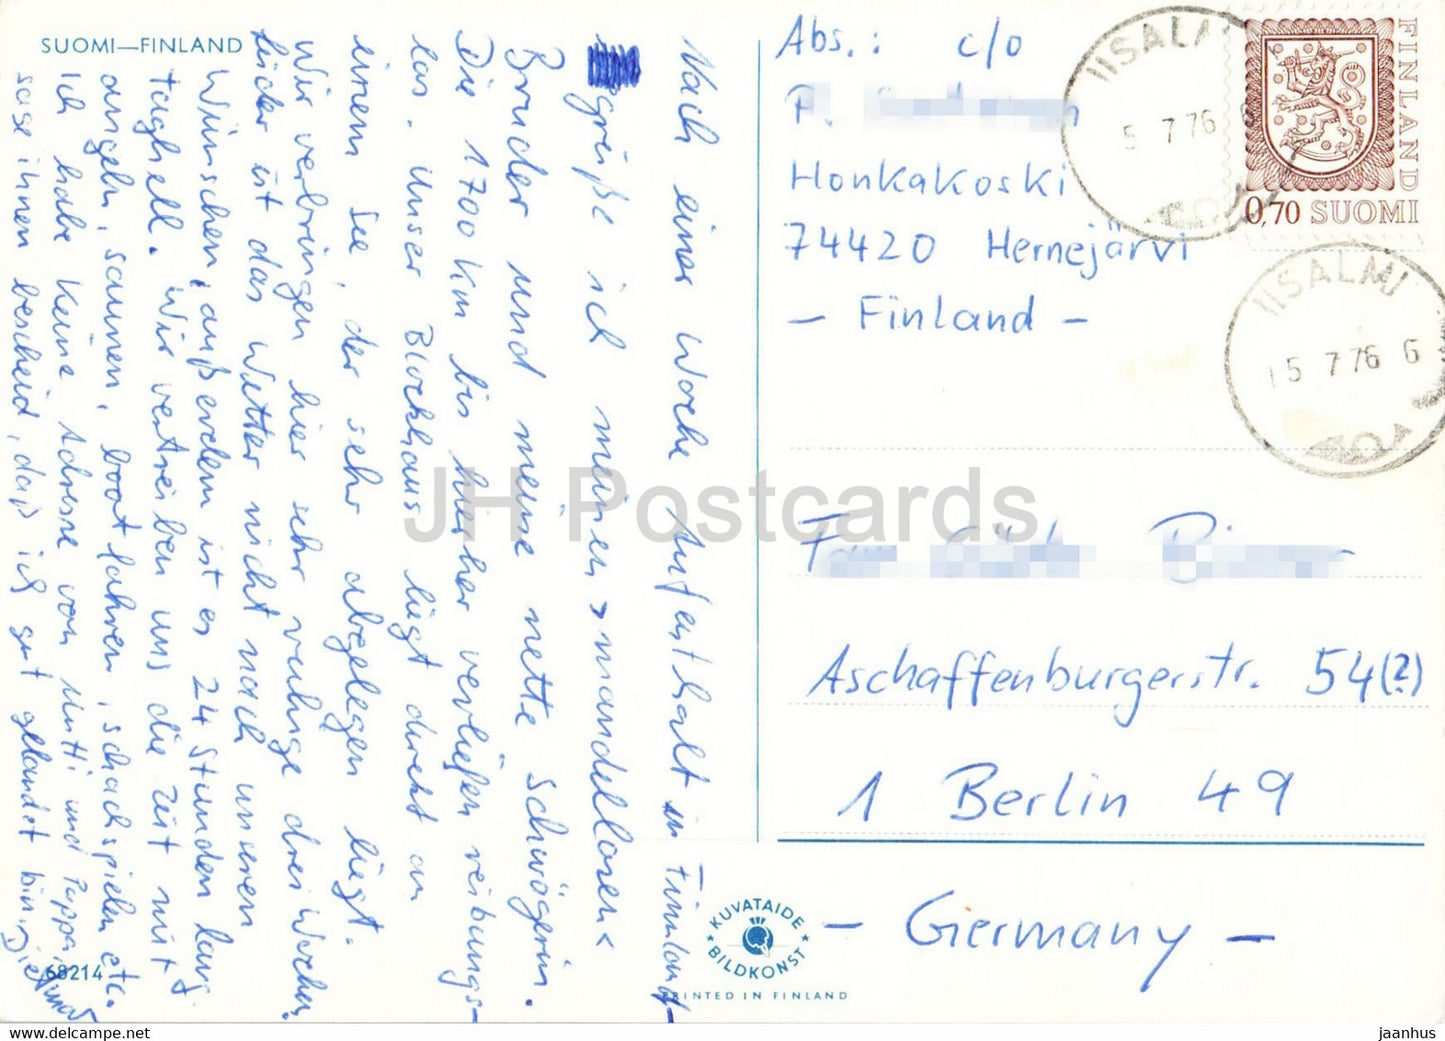 SUOMI—FINLAND
Nach einer Woche Aufenthalt in Finnland
grüße ich meinen >mandellosen<
Bruder und meine nette Schwägerin.
Die 1700 km bis hierher verliefen reibungs-
los. Unser Blockhaus liegt direkt an
einem See, der sehr abgelegen liegt.
Wir verbringen hier sehr ruhige drei Wochen.
Leider ist das Wetter nicht nach unseren
Wünschen, außerdem ist es 24 Stunden lang
taghell. Wir vertreiben uns die Zeit mit
angeln, saunen, boot fahren, schachspielen etc.
Ich habe keine Adresse von Mutti und Pappi,
sage ihnen bescheid, daß ich gut gelandet bin.
Dietmar
68214
KUVATAIDE
BILDKONST
PRINTED IN FINLAND
Abs.: c/o
P.
Honkakoski
74420 Hernejärvi
- Finland -
IISALMI
5 7 76
FINLAND
0,70 SUOMI
IISALMI
15 7 76 6
Fam
Aschaffenburgerstr. 54(?)
1 Berlin 49
- Germany -
JH Postcards
www.delcampe.net
jaanhus